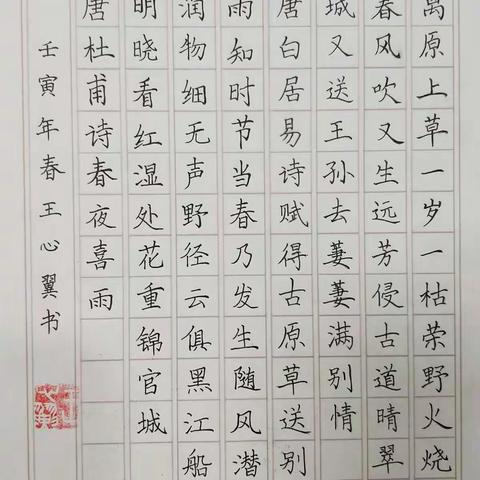 离原上草一岁一枯荣野火烧
春风吹又生远芳侵古道晴翠
城又送王孙去萋萋满别情
唐白居易诗赋得古原草送别
雨知时节当春乃发生随风潜
润物细无声野径云俱黑江船
明晓看红湿处花重锦官城
唐杜甫诗春夜喜雨
壬寅年春王心翼书